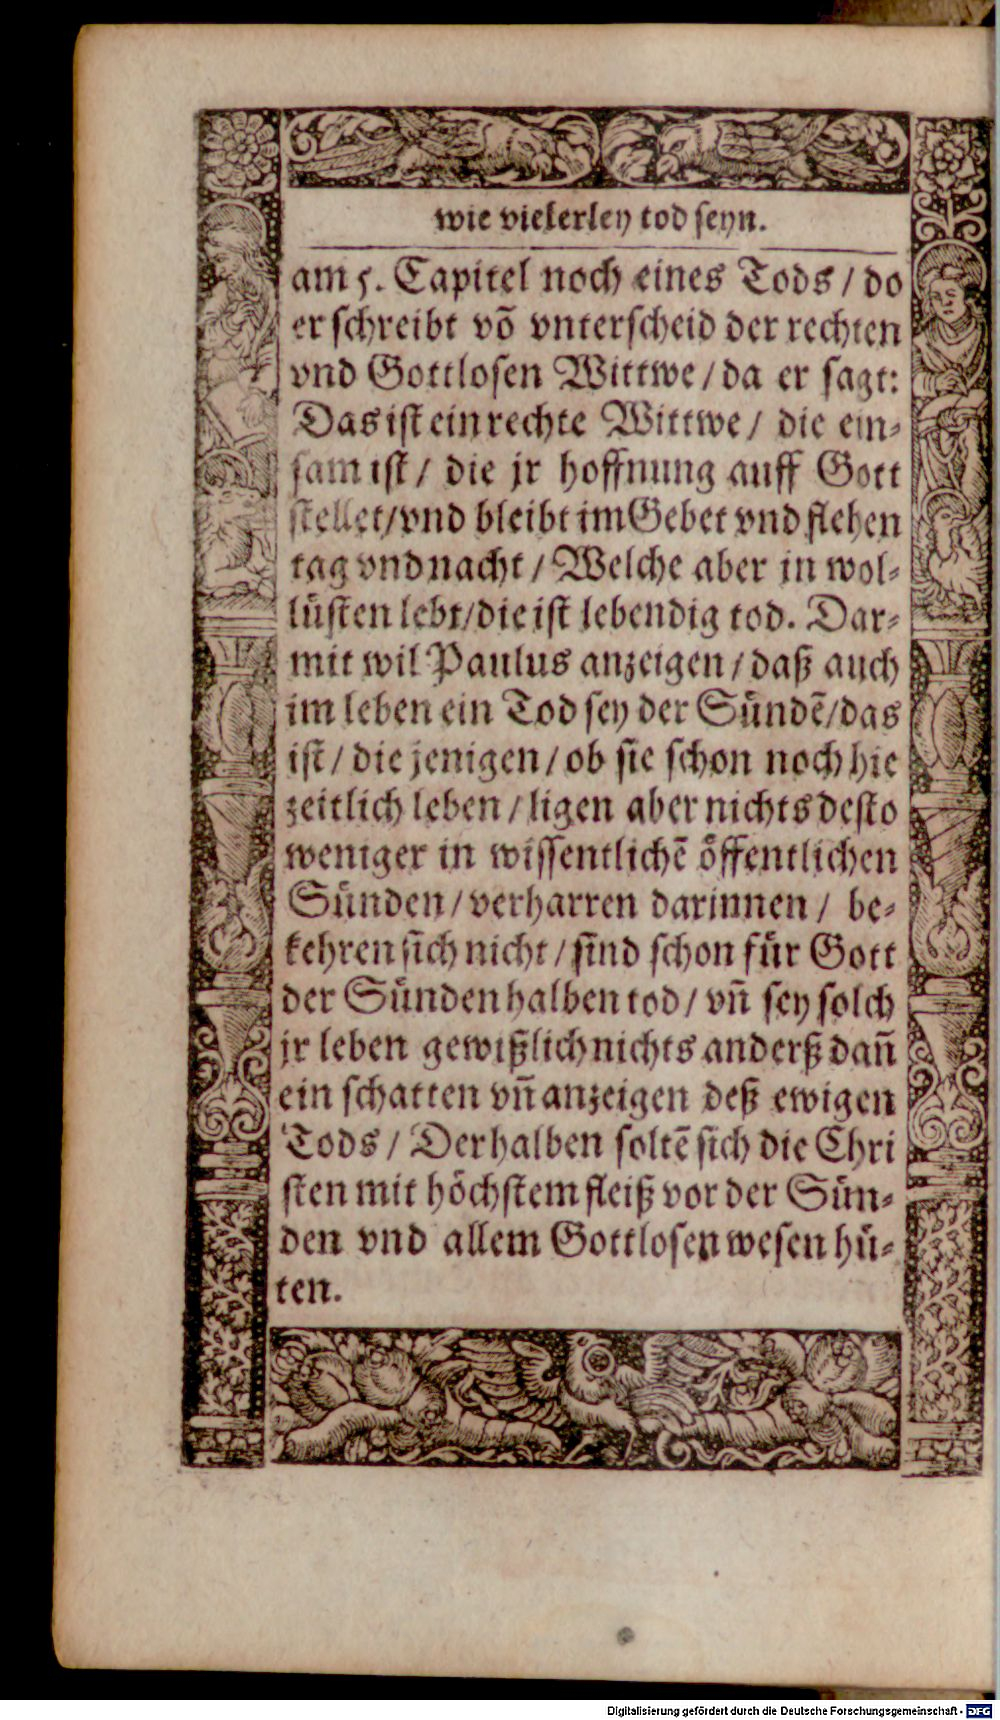 wie vielerley tod seyn.
am 5. Capitel noch eines Tods / do
er schreibt võ vnterscheid der rechten
vnd Gottlosen Wittwe / da er sagt:
Das ist ein rechte Wittwe / die ein⸗
sam ist / die jr hoffnung auff Gott
stellet / vnd bleibt im Gebet vnd flehen
tag vnd nacht / Welche aber in wol⸗
lüsten lebt / die ist lebendig tod. Dar⸗
mit wil Paulus anzeigen / daß auch
im leben ein Tod sey der Sündẽ / das
ist / die jenigen / ob sie schon noch hie
zeitlich leben / ligen aber nichts desto
weniger in wissentlichẽ öffentlichen
Sünden / verharren darinnen / be⸗
kehren sich nicht / sind schon für Gott
der Sünden halben tod / vñ sey solch
jr leben gewißlich nichts anderß dañ
ein schatten vñ anzeigen deß ewigen
Tods / Derhalben soltẽ sich die Chri
sten mit höchstem fleiß vor der Sün⸗
den vnd allem Gottlosen wesen hü⸗
ten.
Digitalisierung gefördert durch die Deutsche Forschungsgemeinschaft - DFG